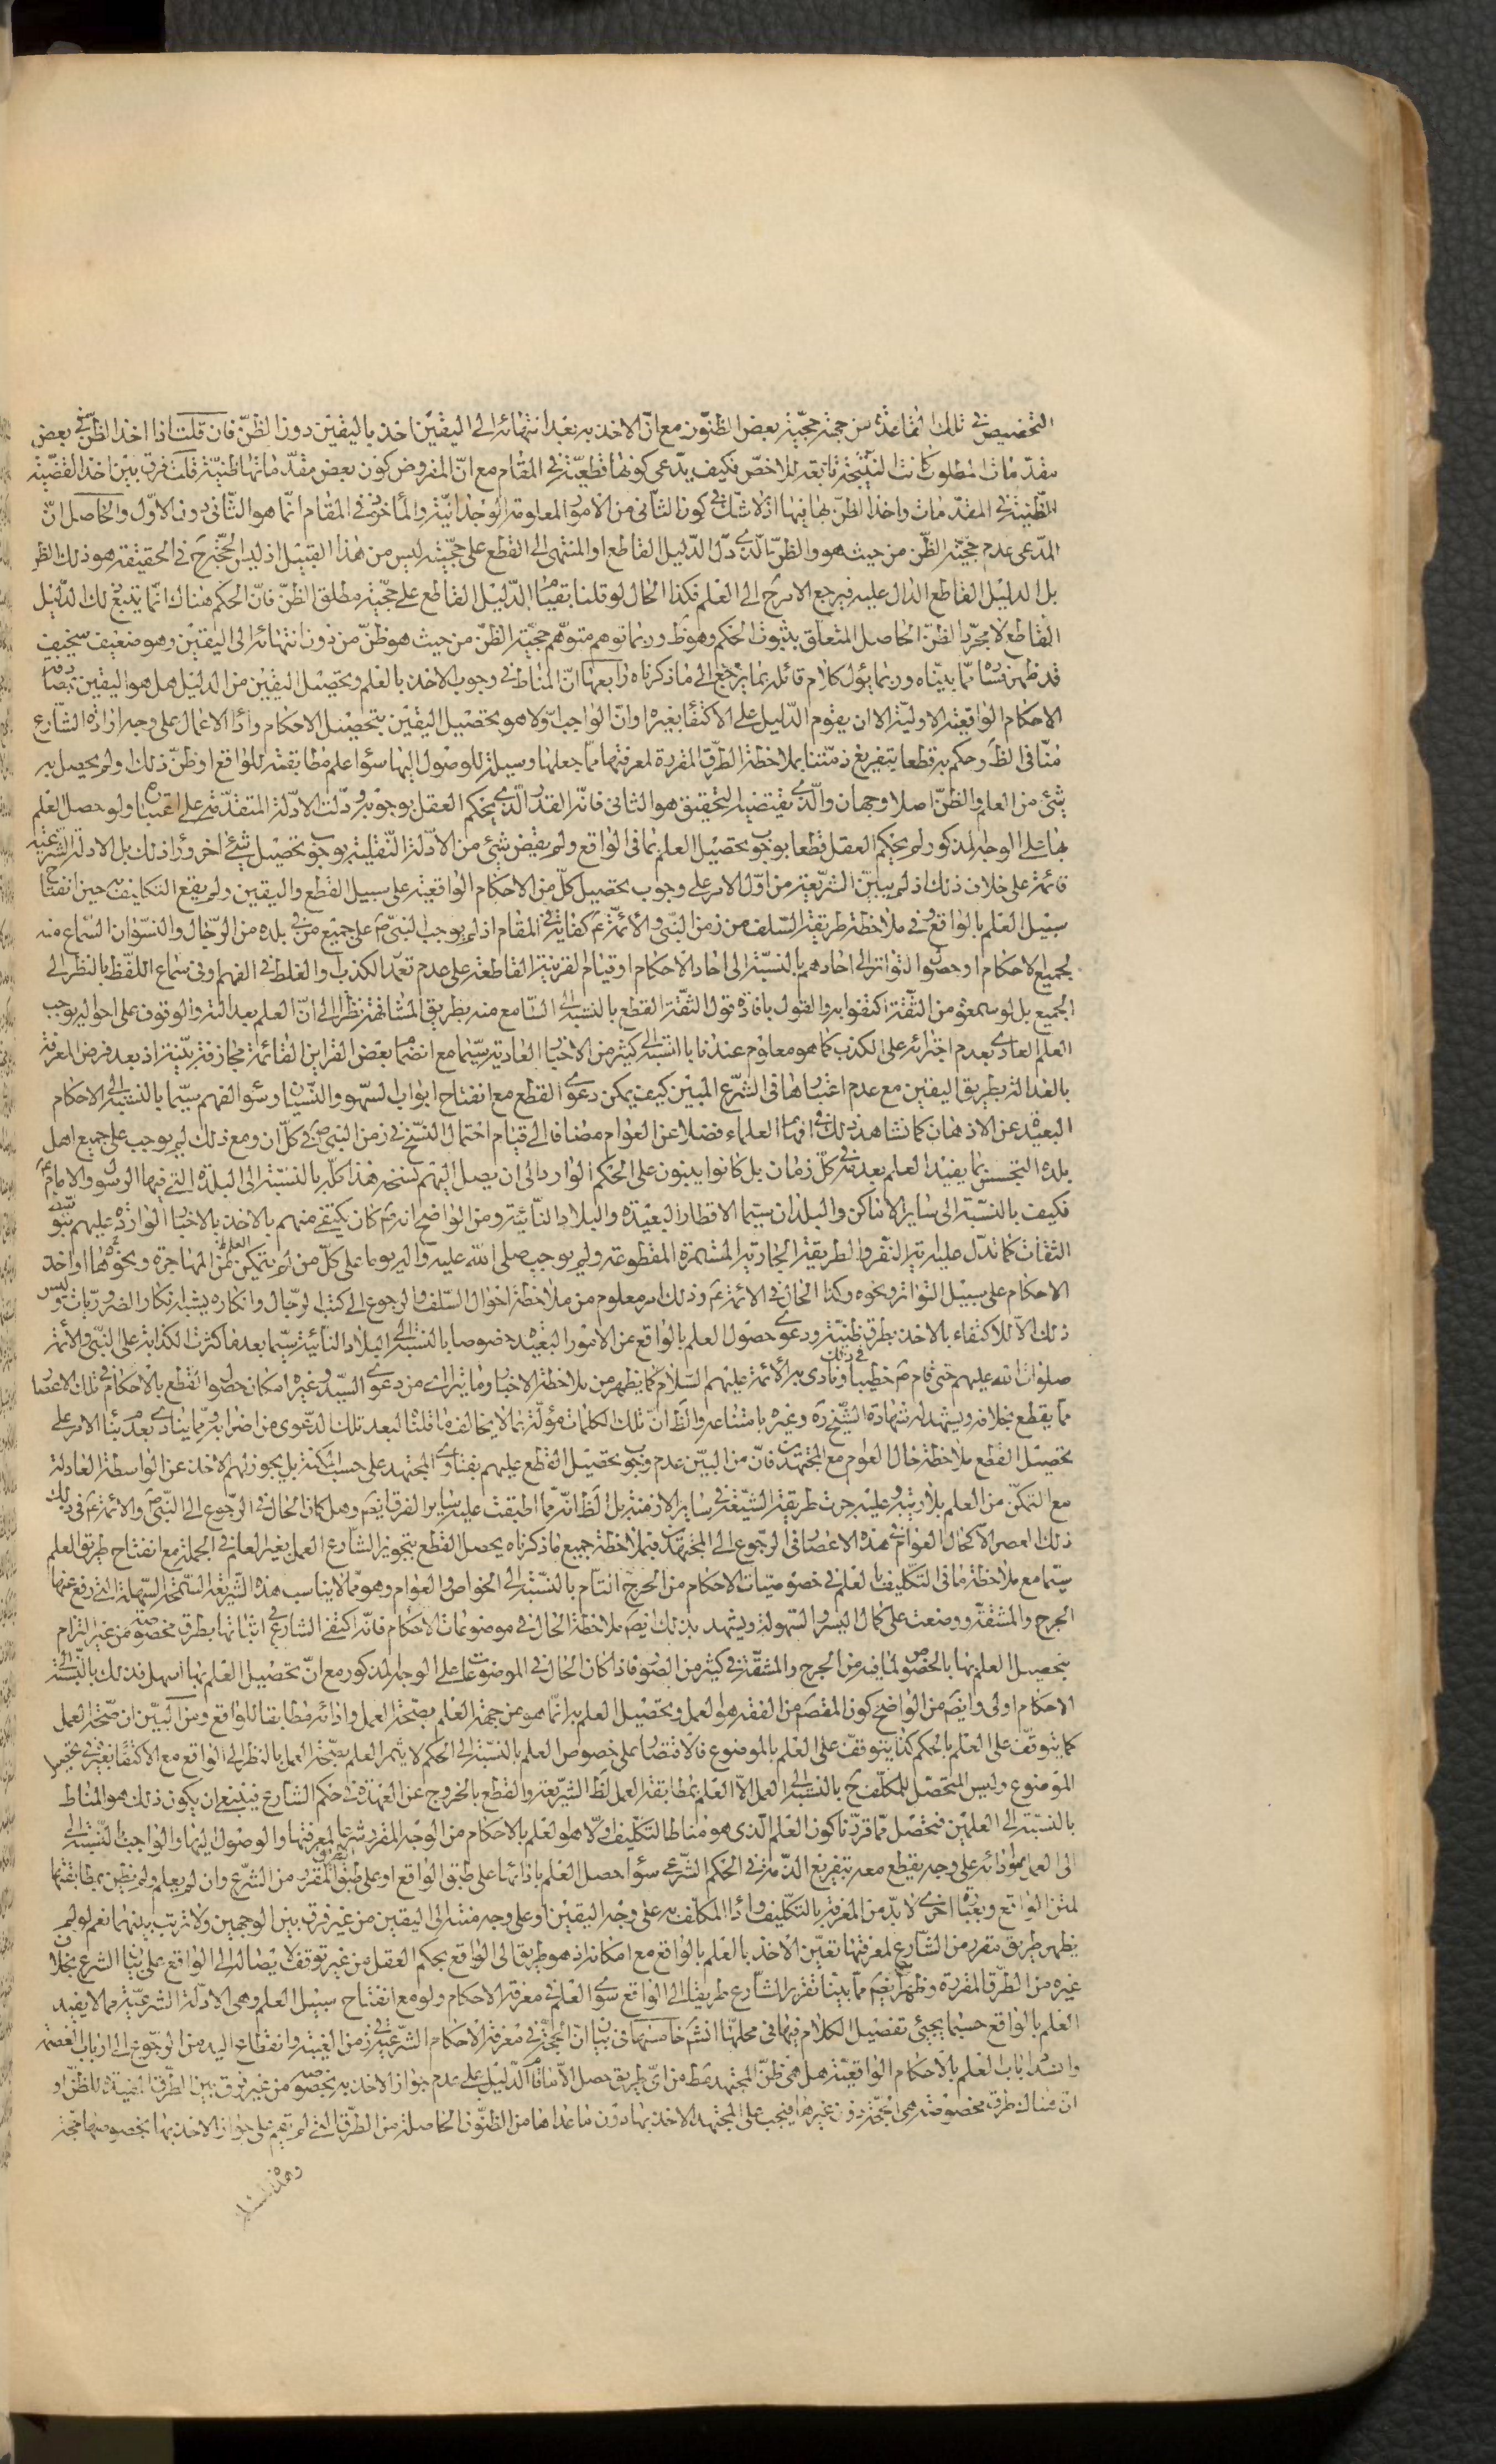 التخصيص في تلك القاعدة من جهة حجية بعض الظنون مع ان الاخذ به بعد انتهائه الى اليقين اخذ باليقين دون الظن فان قلت اذا اخذ الظن في بعض
مقدمات المطلوب كانت النتيجة تابعة للاخص فكيف يدعى كونها قطعية في المقام مع ان المفروض كون بعض مقدماتها ظنية قلت فرق بين اخذ القضية
الظنية في المقدمات واخذ الظن بها فيها اذ لا شك في كون الثاني من الامور المعلومة الوجدانية والمأخوذ في المقام انما هو الثاني دون الاول والحاصل ان
المدعى عدم حجية الظن من حيث هو والظن الذي دل الدليل القاطع او المنتهى الى القطع على حجيته ليس من هذا القبيل اذ ليس الحجة ح في الحقيقة هو ذلك الظن
بل الدليل القاطع الدال عليه فيرجع الامر ح الى العلم فكذا الحال لو قلنا بقيام الدليل القاطع على حجية مطلق الظن فان الحكم هناك انما يتبع ذلك الدليل
القاطع لا مجرد الظن الحاصل المتعلق بثبوت الحكم وهو ظ وربما توهم متوهم حجية الظن من حيث هو ظن من دون انتهائه الى اليقين وهو ضعيف سخيف
قد ظهر فساده مما بيناه وربما يؤل كلام قائله بما يرجع الى ما ذكرناه رابعها ان المناط في وجوب الاخذ بالعلم وتحصيل اليقين من الدليل هل هو اليقين بمصادفة
الاحكام الواقعية الاولية الا ان يقوم الدليل على الاكتفاء بغيره او ان الواجب اولا هو تحصيل اليقين بتحصيل الاحكام واداء الاعمال على وجه اراده الشارع
منا في الظ وحكم به قطعا بتفريغ ذمتنا بملاحظة الطرق المقررة لمعرفتها مما جعلها وسيلة للوصول اليها سواء علم مطابقته للواقع او ظن ذلك ولم يحصل به
شئ من العلم والظن اصلا وجهان والذي يقتضيه التحقيق هو الثاني فانه القدر الذي يحكم العقل بوجوبه ودلت الادلة المتقدمة على اعتباره ولو حصل العلم
بها على الوجه المذكور لم يحكم العقل قطعا بوجوب تحصيل العلم بما في الواقع ولم يقض شئ من الادلة النقلية بوجوب تحصيل شئ اخر وراء ذلك بل الادلة الشرعية
قائمة على خلاف ذلك اذ لم يبين الشريعة من اول الامر على وجوب تحصيل كل من الاحكام الواقعية على سبيل القطع واليقين ولم يقع التكليف به حين انفتاح
سبيل العلم بالواقع وفي ملاحظة طريقة السلف من زمن النبي والائمة ع كفاية في المقام اذ لم يوجب النبي ص على جميع من في بلده من الرجال والنسوان السماع منه
لجميع الاحكام او حصول التواتر الى احادهم بالنسبة الى احاد الاحكام او قيام القرينة القاطعة على عدم تعمد الكذب والغلط في الفهم وفي سماع اللفظ بالنظر الى
الجميع بل لو سمعوه من الثقة اكتفوا به والقول بافادة قول الثقة القطع بالنسبة الى السامع منه بطريق المشافهة نظرا الى ان العلم بعدالته والوقوف على احواله يوجب
العلم العادي بعدم اجترائه على الكذب كما هو معلوم عندنا بالنسبة الى كثير من الاخبار العادية سيما مع انضمام بعض القراين القائمة مجازفة بينة اذ بعد فرض المعرفة
بالعدالة بطريق اليقين مع عدم اعتبارها في الشرع المبين كيف يمكن دعوى القطع مع انفتاح ابواب السهو والنسيان وسوء الفهم سيما بالنسبة الى الاحكام
البعيدة عن الاذهان كما نشاهد ذلك في افهام العلماء فضلا عن العوام مضافا الى قيام احتمال النسخ في زمن النبي ص في كل ان ومع ذلك لم يوجب على جميع اهل
بلده التجسس بما يفيد العلم بعدمه في كل زمان بل كانوا يبنون على الحكم الوارد الى ان يصل اليهم نسخه هذا كله بالنسبة الى البلدة التي فيها الرسول او الامام ع
فكيف بالنسبة الى ساير الاماكن والبلدان سيما الاقطار البعيدة والبلاد النائية ومن الواضح انه ص كان يكتفي منهم بالاخذ بالاخبار الواردة عليهم بتوسط
الثقات كما تدل عليه اية النفر والطريقة الجارية المستمرة المقطوعة ولم يوجب صلى الله عليه واله يوما على كل من لم يتمكن من العلم المهاجرة ونحوها او اخذ
الاحكام على سبيل التواتر ونحوه وكذا الحال في الائمة ع وذلك امر معلوم من ملاحظة احوال السلف والرجوع الى كتب الرجال وانكاره يشبه انكار الضروريات وليس
ذلك الا للاكتفاء بالاخذ بطرق ظنية ودعوى حصول العلم بالواقع عن الامور البعيدة خصوصا بالنسبة الى البلاد النائية سيما بعد ما كثرت الكذابة على النبي والائمة
صلوات الله عليهم حتى قام ص خطيبا في ذلك ونادى به الائمة عليهم السلام كما يظهر من ملاحظة الاخبار وما يتراءى من دعوى السيد وغيره امكان حصول القطع بالاحكام في تلك الاعصار
مما يقطع بخلافه ويشهد له شهادة الشيخ ره وغيره بامتناعه والظ ان تلك الكلمات مؤلة بما لا يخالف ما قلناه لبعد تلك الدعوى من اضرابه ومما ينادي بعدم بناء الامر على
تحصيل القطع ملاحظة حال العوام مع المجتهدين فان من البين عدم وجوب تحصيل القطع عليهم بفتاوى المجتهد على حسب المكنة بل يجوز لهم الاخذ عن الواسطة العادلة
مع التمكن من العلم بلا ريب وعليه جرت طريقة الشيعة في ساير الازمنة بل الظ انه مما اطبقت عليه ساير الفرق ايضا وهل كان الحال في الرجوع الى النبي ص والائمة ع في ذلك
العصر الا كحال العوام في هذه الاعصار في الرجوع الى المجتهدين فبملاحظة جميع ما ذكرناه يحصل القطع بتجويز الشارع العمل بغير العلم في الجملة مع انفتاح طريق العلم
سيما مع ملاحظة ما في التكليف بالعلم في خصوصيات الاحكام من الحرج التام بالنسبة الى الخواص والعوام وهو مما لا يناسب هذه الشريعة السمحة السهلة التي رفع عنها
الحرج والمشقة ووضعت على كمال اليسر والسهولة ويشهد بذلك ايضا ملاحظة الحال في موضوعات الاحكام فانه اكتفى الشارع في اثباتها بطرق مخصوصة من غير الزام
بتحصيل العلم بها بالخصوص لما فيه من الحرج والمشقة في كثير من الصور فاذا كان الحال في الموضوعات على الوجه المذكور مع ان تحصيل العلم بها اسهل فذلك بالنسبة الى
الاحكام اولى وايضا من الواضح كون المقصود من الفقه هو العمل وتحصيل العلم به انما هو من جهة العلم بصحة العمل وادائه مطابقا للواقع ومن البين ان صحة العمل
كما يتوقف على العلم بالحكم كذا يتوقف على العلم بالموضوع فالاقتصار على خصوص العلم بالنسبة الى الحكم لا يثمر العلم بصحة العمل بالنظر الى الواقع مع الاكتفاء بغيره في تحصيل
الموضوع وليس المتحصل للمكلف ح بالنسبة الى العمل الا العلم بمطابقة العمل لظ الشريعة والقطع بالخروج عن العهدة في حكم الشارع فينبغي ان يكون ذلك هو المناط
بالنسبة الى العلمين فتحصل مما قررنا كون العلم الذي هو مناط التكليف اولا هو العلم بالاحكام من الوجه المقرر شرعا لمعرفتها والوصول اليها والواجب بالنسبة
الى العمل هو ادائه على وجه يقطع معه بتفريغ الذمة في الحكم الشرعي سواء حصل العلم بادائها على طبق الواقع او على طبق الطريق المقرر من الشرع وان لم يعلم ولم يظن بمطابقتها
لمتن الواقع وبعبارة اخرى لا بد من المعرفة بالتكليف واداء المكلف به على وجه اليقين او على وجه منتهى الى اليقين من غير فرق بين الوجهين ولا ترتب بينهما نعم لو لم
يظهر طريق مقرر من الشارع لمعرفتها تعين الاخذ بالعلم بالواقع مع امكانه اذ هو طريق الى الواقع بحكم العقل من غير توقف لايصاله الى الواقع على بيان الشرع بخلاف
غيره من الطرق المقررة وظهر ايضا مما بينا تقرير الشارع طريقا الى الواقع سوى العلم في معرفة الاحكام ولو مع انفتاح سبيل العلم وهي الادلة الشرعية مما لا يفيد
العلم بالواقع حسبما يجئ تفصيل الكلام فيها في محلها انشاء خامسها في بيان ان الحجة في معرفة الاحكام الشرعية في زمن الغيبة وانقطاع اليد من الرجوع الى ارباب العصمة
وانسداد باب العلم بالاحكام الواقعية هل هي ظن المجتهد مط من اي طريق حصل الا ما قام الدليل على عدم جواز الاخذ به بخصوصه من غير فرق بين الطرق المفيدة للظن او
ان هناك طرق مخصوصة هي الحجة دون غيرها فيجب على المجتهد الاخذ بها دون ما عداها من الظنون الحاصلة من الطرق التي لم تقم على جواز الاخذ بها بخصوصها حجة